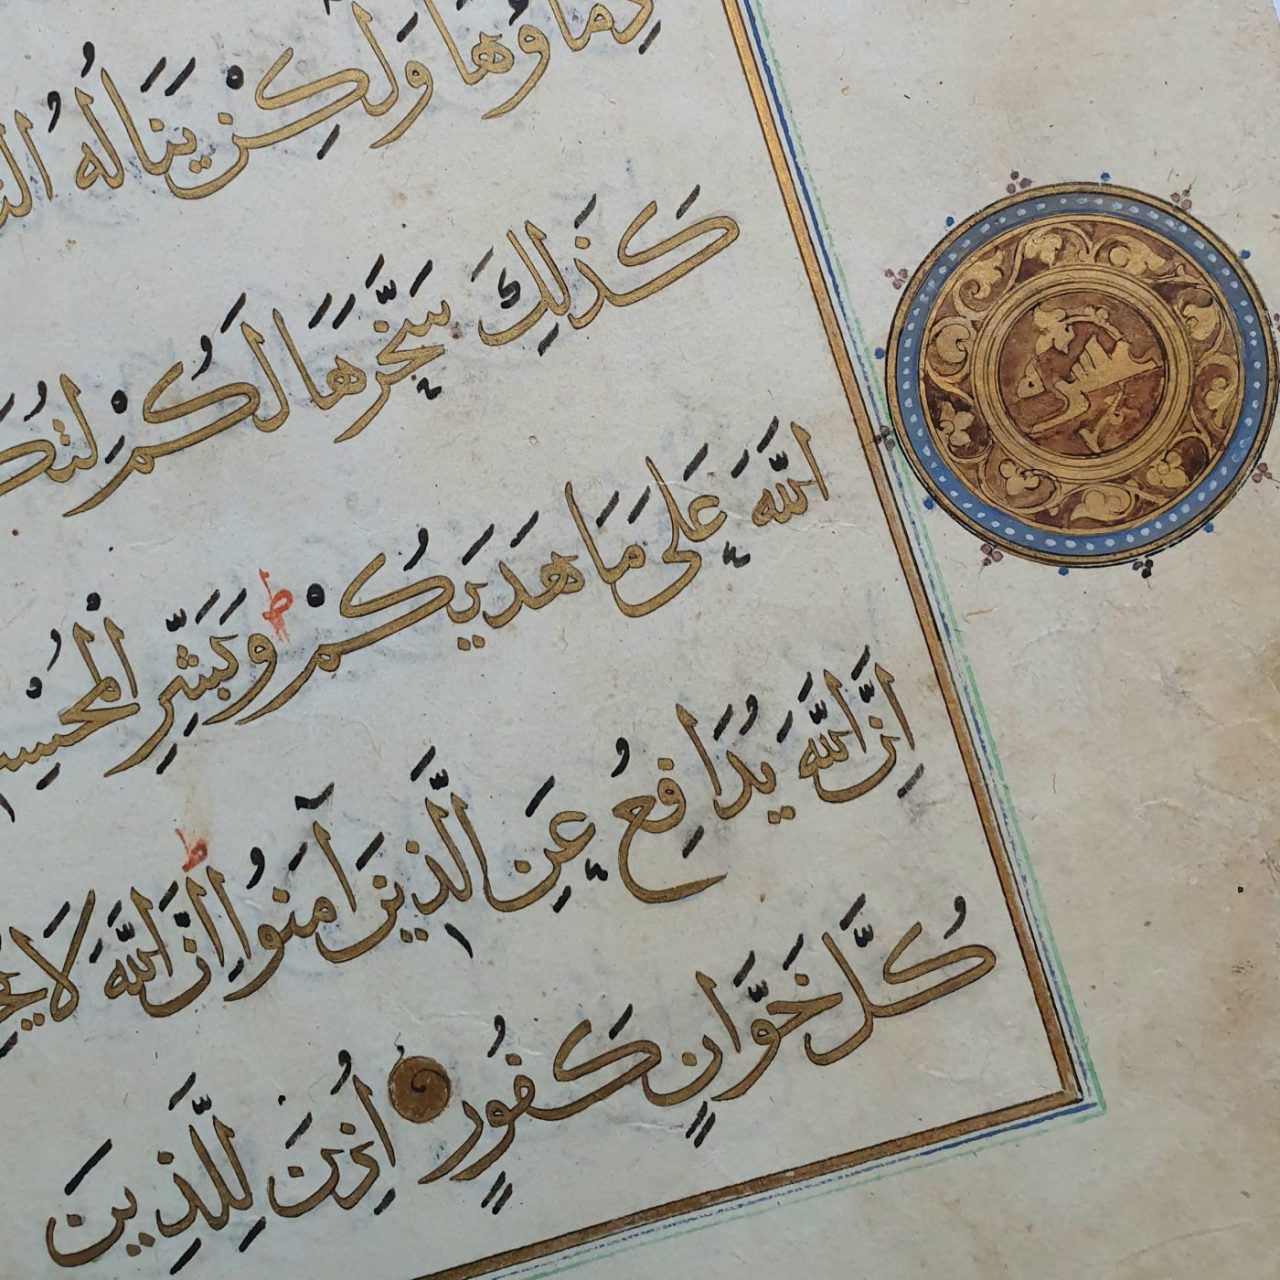 دِمَاؤُهَا وَلَٰكِنْ يَنَالُهُ
كَذَٰلِكَ سَخَّرَهَا لَكُمْ
اللَّهَ عَلَىٰ مَا هَدَيٰكُمْ ط وَبَشِّرِ الْمُحْسِ
اِنَّ اللَّهَ يُدَافِعُ عَنِ الَّذِينَ آمَنُوا ط اِنَّ اللَّهَ لَا
كُلَّ خَوَّانٍ كَفُورٍ اُذِنَ لِلَّذِينَ